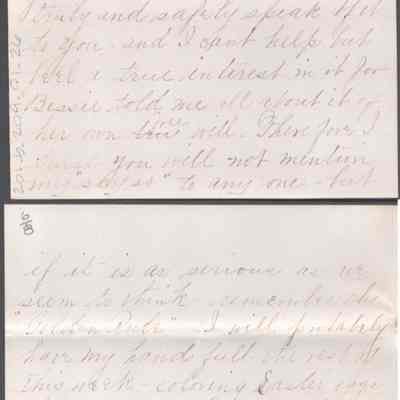 truly and safely speak of it
to you and I cant help but
feel a true interest in it for
Bessie told me all about it of
her own free will. Therefore I
trust you will not mention
my "says so" to any one - but
if it is as serious as we
seem to think - remember the
"Golden Rule" - I will probably
have my hands full the rest of
this week - coloring Easter eggs